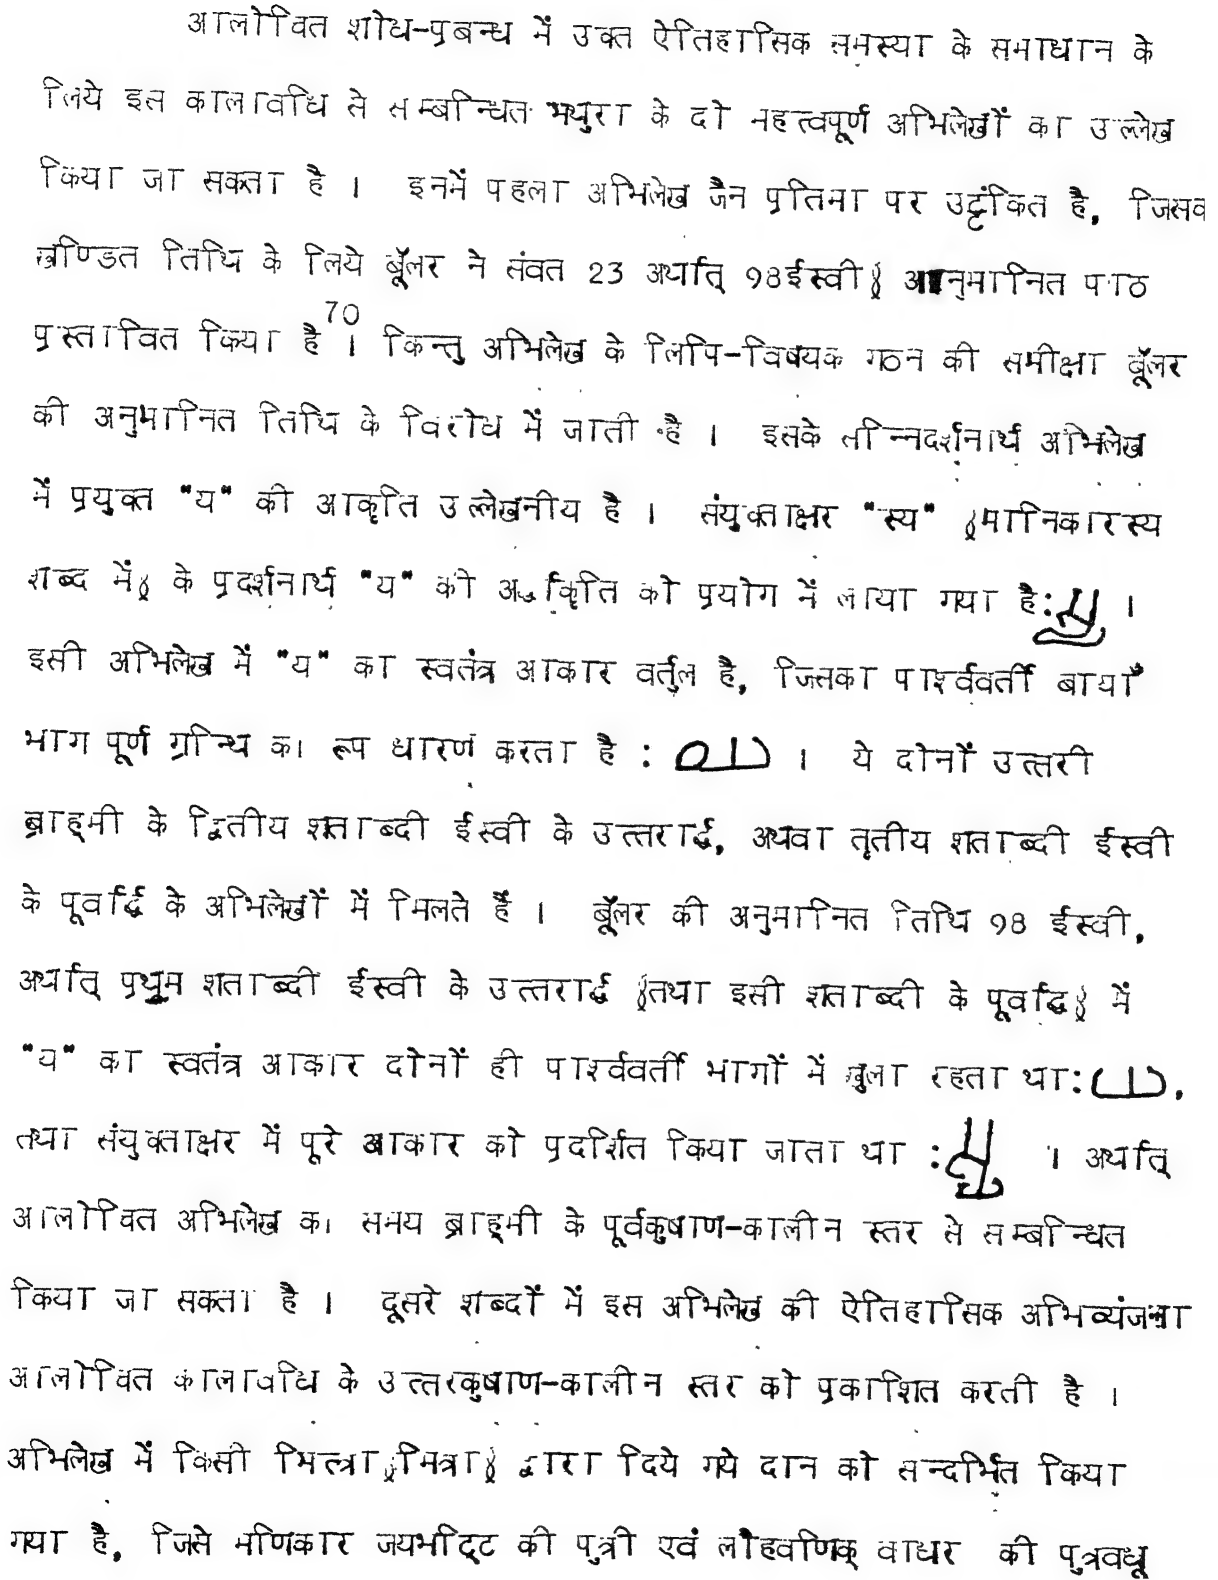 आलोचित शोध-प्रबन्ध में उक्त ऐतिहासिक समस्या के समाधान के
लिये इस कालावधि से सम्बन्धित मथुरा के दो महत्वपूर्ण अभिलेखों का उल्लेख
किया जा सकता है । इनमें पहला अभिलेख जैन प्रतिमा पर उट्टंकित है, जिसक
खण्डित तिथि के लिये बूॅलर ने संवत 23 अर्थात् 98ईस्वी⟩ आनुमानित पाठ
प्रस्तावित किया है70। किन्तु अभिलेख के लिपि-विषयक गठन की समीक्षा बूॅलर
की अनुमानित तिथि के विरोध में जाती है । इसके सन्निदर्शनार्थ अभिलेख
में प्रयुक्त "य" की आकृति उल्लेखनीय है । संयुक्ताक्षर "स्य" (मानिकारस्य
शब्द में) के प्रदर्शनार्थ "य" की आकृति को प्रयोग में लाया गया है: ।
इसी अभिलेख में "य" का स्वतंत्र आकार वर्तुल है, जिसका पार्श्ववर्ती बायाँ
भाग पूर्ण ग्रन्थि का रूप धारण करता है : । ये दोनों उत्तरी
ब्राह्मी के द्वितीय शताब्दी ईस्वी के उत्तरार्द्ध, अथवा तृतीय शताब्दी ईस्वी
के पूर्वार्द्ध के अभिलेखों में मिलते हैं । बूॅलर की अनुमानित तिथि 98 ईस्वी,
अर्थात् प्रथम शताब्दी ईस्वी के उत्तरार्द्ध (तथा इसी शताब्दी के पूर्वार्द्ध) में
"य" का स्वतंत्र आकार दोनों ही पार्श्ववर्ती भागों में खुला रहता था: ,
तथा संयुक्ताक्षर में पूरे आकार को प्रदर्शित किया जाता था : । अर्थात्
आलोचित अभिलेख का समय ब्राह्मी के पूर्वकुषाण-कालीन स्तर से सम्बन्धित
किया जा सकता है । दूसरे शब्दों में इस अभिलेख की ऐतिहासिक अभिव्यंजना
आलोचित कालावधि के उत्तरकुषाण-कालीन स्तर को प्रकाशित करती है ।
अभिलेख में किसी मित्त्रा (मित्रा) द्वारा दिये गये दान को सन्दर्भित किया
गया है, जिसे मणिकार जयभट्टि की पुत्री एवं लोहवणिक् वाधर की पुत्रवधू